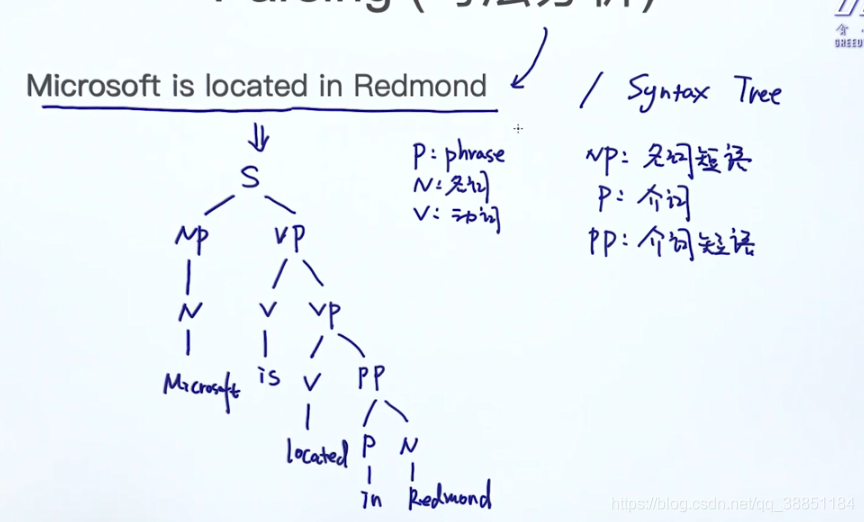 Parsing (句法分析)
Microsoft is located in Redmond
/ Syntax Tree
P: phrase
N: 名词
V: 动词
NP: 名词短语
P: 介词
PP: 介词短语
S
NP VP
N V VP
Microsoft is V PP
located P N
in Redmond
https://blog.csdn.net/qq_38851184